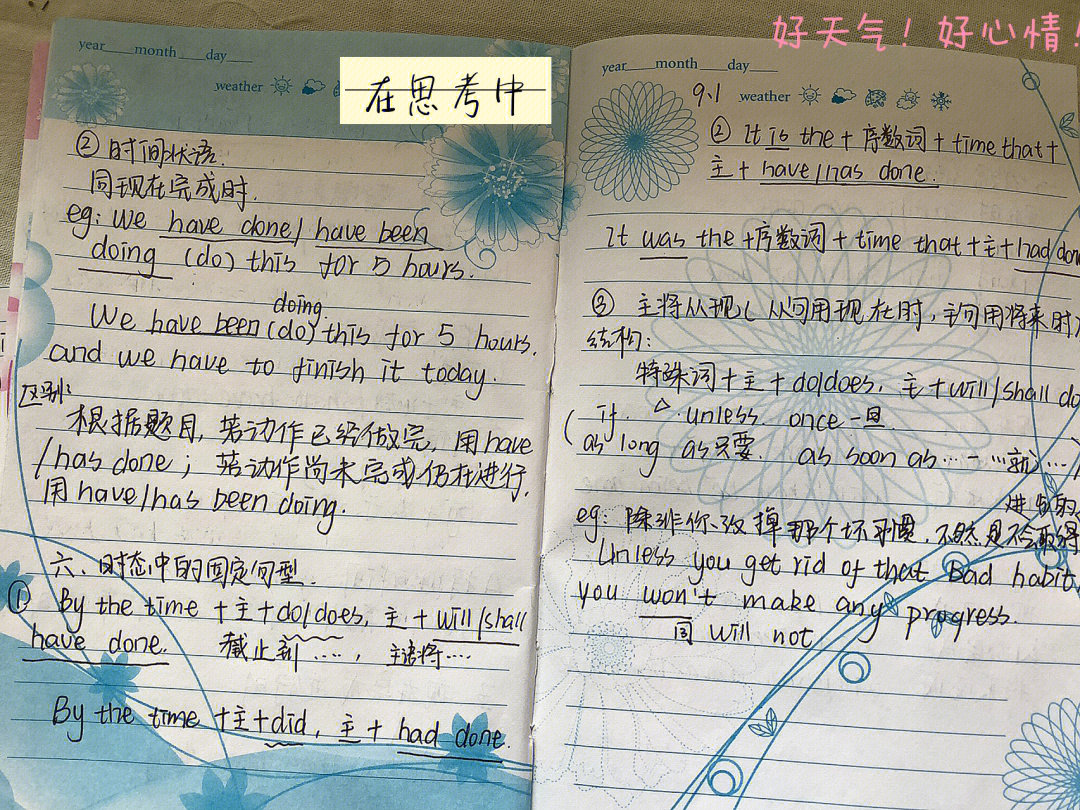 好天气！好心情！
year month day
weather
在思考中
② 时间状语.
同现在完成时.
eg: We have done/ have been
doing (do) this for 5 hours.
doing.
We have been (do) this for 5 hours.
and we have to finish it today.
区别:
根据题目, 若动作已经做完, 用 have
/has done; 若动作尚未完成仍在进行,
用 have/has been doing.
六、时态中的固定句型.
① By the time +主+do/does, 主 + will/shall
have done. 截止到 ……, 主语将……
By the time +主+did, 主 + had done.
year month day
9.1 weather
② It is the + 序数词 + time that +
主 + have/has done.
It was the +序数词 + time that +主+had done
③ 主将从现 ( 从句用现在时, 主句用将来时
结构:
特殊词 + 主 + do/does, 主 + will/shall do
( if. △ unless. once 一旦.
as long as 只要. as soon as … 一 … 就 … )
进步的
eg: 除非你改掉那个坏习惯, 不然是不会取得
Unless you get rid of that Bad habit,
you won't make any progress.
同 will not